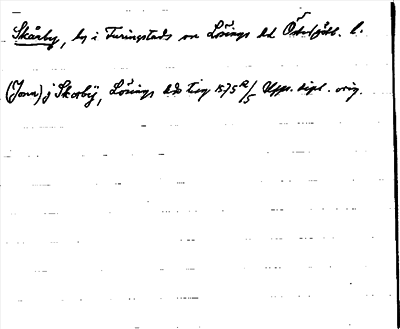 Skårby, by i Furingstads sn Lösings hd Östergötl. l.
(Jone) j Skorby, Lösings hds ting 1575 12/5 Upps. dipl. orig.